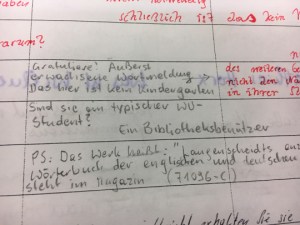 schließlich ist das kein
warum?
Gratuliere! Äußerst
erwachsene Wortmeldung
des weiteren
Das hier ist kein Kindergarten
nicht den
in ihrer
Sind sie ein typischer WU-
Student?
Ein Bibliotheksbenützer
PS: Das Werk heißt: "Langenscheidts
Wörterbuch der englischen und deutschen
steht im Magazin (71096-C)
sie